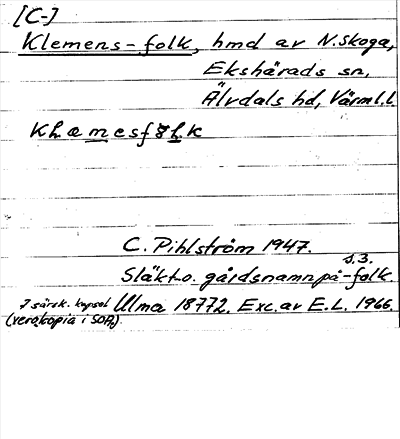 [C-]
Klemens-folk, hmd av N. Skoga,
Ekshärads sn,
Älvdals hd, Värml.l.
C. Pihlström 1947.
s.3.
Släkt- o. gårdsnamn på -folk.
I särsk. kapsel Ulma 18772. Exc. av E.L. 1966.
(xerokopia i SOA).